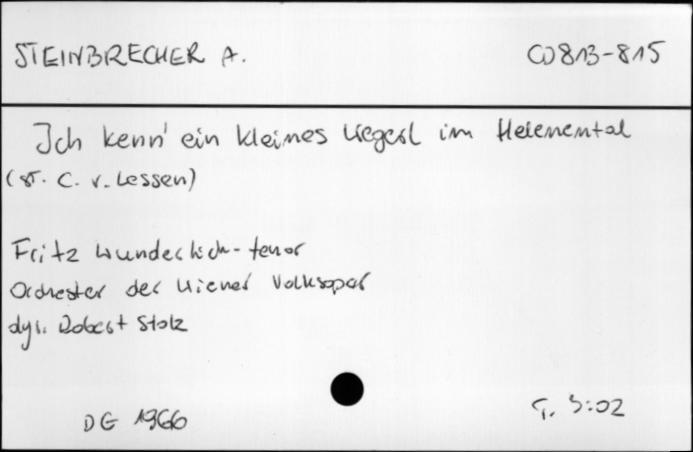 STEINBRECHER A. CD 813-815
Ich kenn' ein kleines Wegerl im Helenental
(sł. C. v. Lessen)
Fritz Wunderlich - tenor
Orchester der Wiener Volksoper
dyr. Robert Stolz
DG 1966
T. 3:02